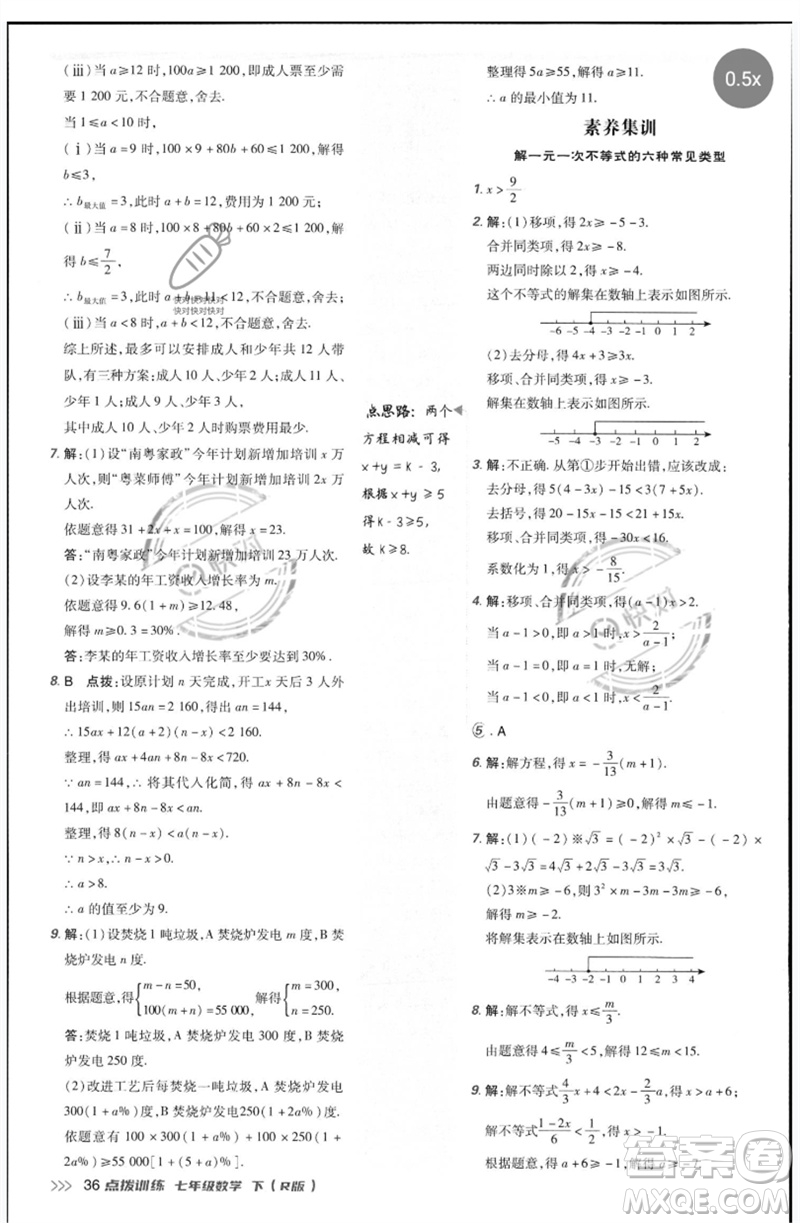 (ⅲ)当 a≥12 时,100a≥1 200,即成人票至少需
要 1 200 元,不合题意,舍去.
当 1≤a<10 时,
(ⅰ)当 a=9 时,100×9+80b+60≤1 200,解得
b≤3,
∴b最大值=3,此时 a+b=12,费用为 1 200 元.
(ⅱ)当 a=8 时,100×8+80b+60×2≤1 200,解
得 b≤7/2,
∴b最大值=3,此时 a+b=11<12,不合题意,舍去.
快对快对快对
快对快对快对
(ⅲ)当 a<8 时,a+b<12,不合题意,舍去.
综上所述,最多可以安排成人和少年共 12 人带
队,有三种方案:成人 10 人,少年 2 人;成人 11
人,少年 1 人;成人 9 人,少年 3 人,
其中成人 10 人,少年 2 人时购票费用最少.
7. 解:(1)设“南粤家政”今年计划新增加培训 x 万
人次,则“粤菜师傅”今年计划新增加培训 2x 万
人次.
依题意得 31+2x+x=100,解得 x=23.
答:“南粤家政”今年计划新增加培训 23 万人次.
(2)设李某的年工资收入增长率为 m.
依题意得 9.6(1+m)≥12.48,
解得 m≥0.3=30%.
答:李某的年工资收入增长率至少要达到 30%.
8. B 点拨:设原计划 n 天完成,开工 x 天后 3 人外
出培训,则 15an=2 160,即 an=144,
∴15ax+12(a+2)(n-x)<2 160.
整理,得 ax+4an+8n-8x<720.
∵an=144,∴将其代入化简,得 ax+8n-8x<
144,即 ax+8n-8x<an.
整理,得 8(n-x)<a(n-x).
∵n>x,∴n-x>0.
∴a>8.
∴a 的值至少为 9.
9. 解:(1)设焚烧 1 吨垃圾,A 焚烧炉发电 m 度,B 焚
烧炉发电 n 度.
根据题意,得{m-n=50, 100(m+n)=55 000, 解得{m=300, n=250.
答:焚烧 1 吨垃圾,A 焚烧炉发电 300 度,B 焚烧
炉发电 250 度.
(2)改进工艺后每焚烧一吨垃圾,A 焚烧炉发电
300(1+a%)度,B 焚烧炉发电 250(1+2a%)度.
依题意有 100×300(1+a%)+100×250(1+
2a%)≥55 000[1+(5+a)%].
点思路:两个
方程相减可得
x+y=k-3,
根据 x+y≥5
得k-3≥5,
故 k≥8.
整理得 5a≥55,解得 a≥11.
∴a 的最小值为 11.
0.5x
素养集训
解一元一次不等式的六种常见类型
1. x>9/2
2. 解:(1)移项,得 2x≥-5-3.
合并同类项,得 2x≥-8.
两边同时除以 2,得 x≥-4.
这个不等式的解集在数轴上表示如图所示.
-6 -5 -4 -3 -2 -1 0 1 2
(2)去分母,得 4x+3≥3x.
移项、合并同类项,得 x≥-3.
解集在数轴上表示如图所示.
-6 -5 -4 -3 -2 -1 0 1 2
3. 解:不正确.从第①步开始出错,应该改成:
去分母,得 5(4-3x)-1<7(3+5x).
去括号,得 20-15x-1<21+35x.
移项、合并同类项,得-30x<16.
系数化为 1,得 x>-8/15.
4. 解:移项、合并同类项,得(a-1)x>2.
当 a-1>0,即 a>1 时,x>2/(a-1);
当 a-1=0,即 a=1 时,无解;
当 a-1<0,即 a<1 时,x<2/(a-1).
5. A
6. 解:解方程,得 x=-3/13(m+1).
由题意得-3/13(m+1)≥0,解得 m≤-1.
7. 解:(1)(-2)※√3=(-2)²×√3-(-2)×
√3-3√3=4√3+2√3-3√3=3√3.
(2)3※m≥-6,则 3²m-3m-3m≥-6,
解得 m≥-2.
将解集表示在数轴上如图所示.
-4 -3 -2 -1 0 1 2 3 4
8. 解:解不等式,得 x≤m/3.
由题意,得 4≤m/3<5,解得 12≤m<15.
9. 解:解不等式4/3x+4<2x-2/3a,得 x>a+6;
解不等式(1-2x)/6<1/2,得 x>-1.
>>> 36 点拨训练 七年级数学 下(R版)